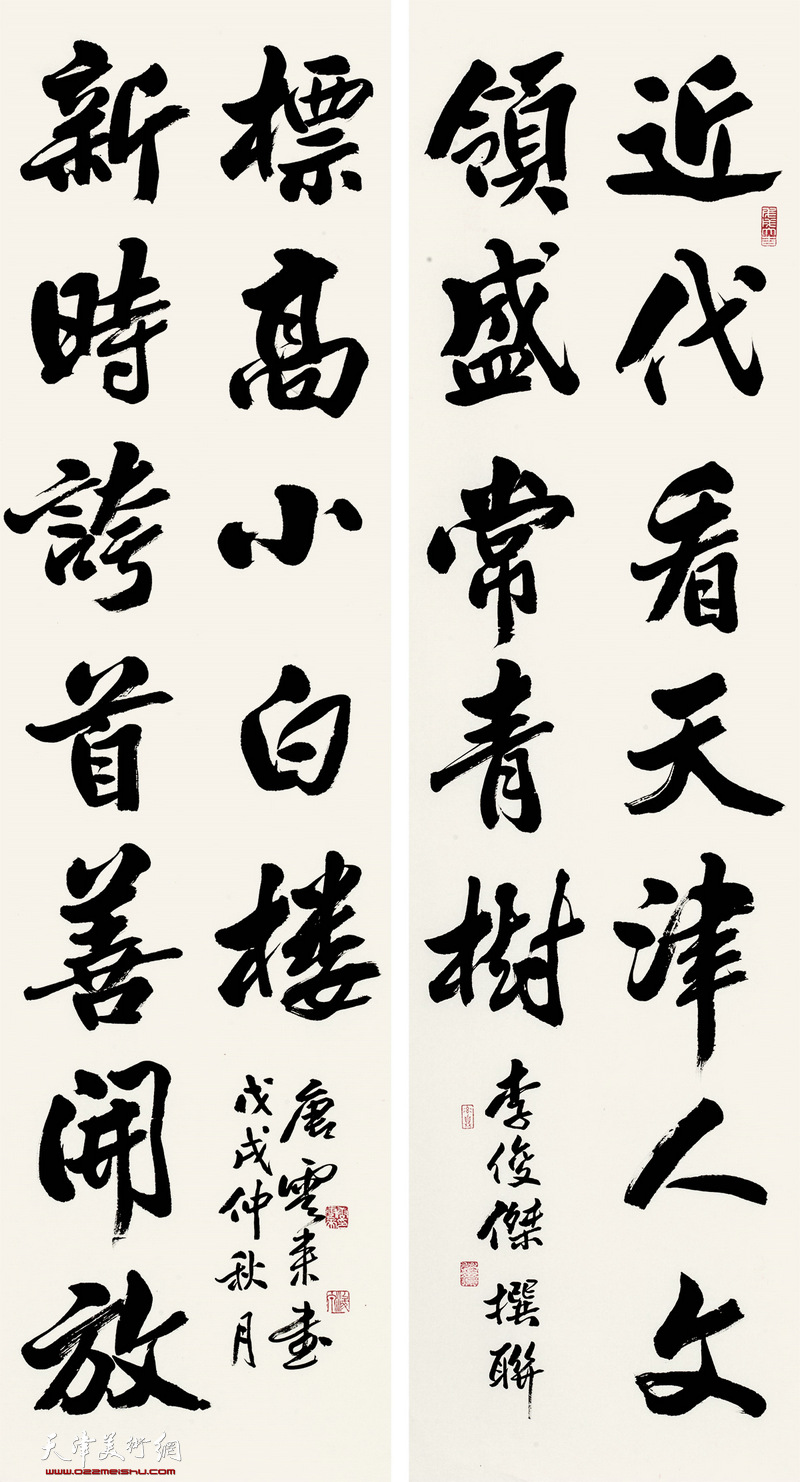 近代看天津人文
領盛常青樹
李俊傑撰聯
新時誇首善開放
標高小白楼
戊戌仲秋月
唐雲来書
天津美術網
www.022meishu.com